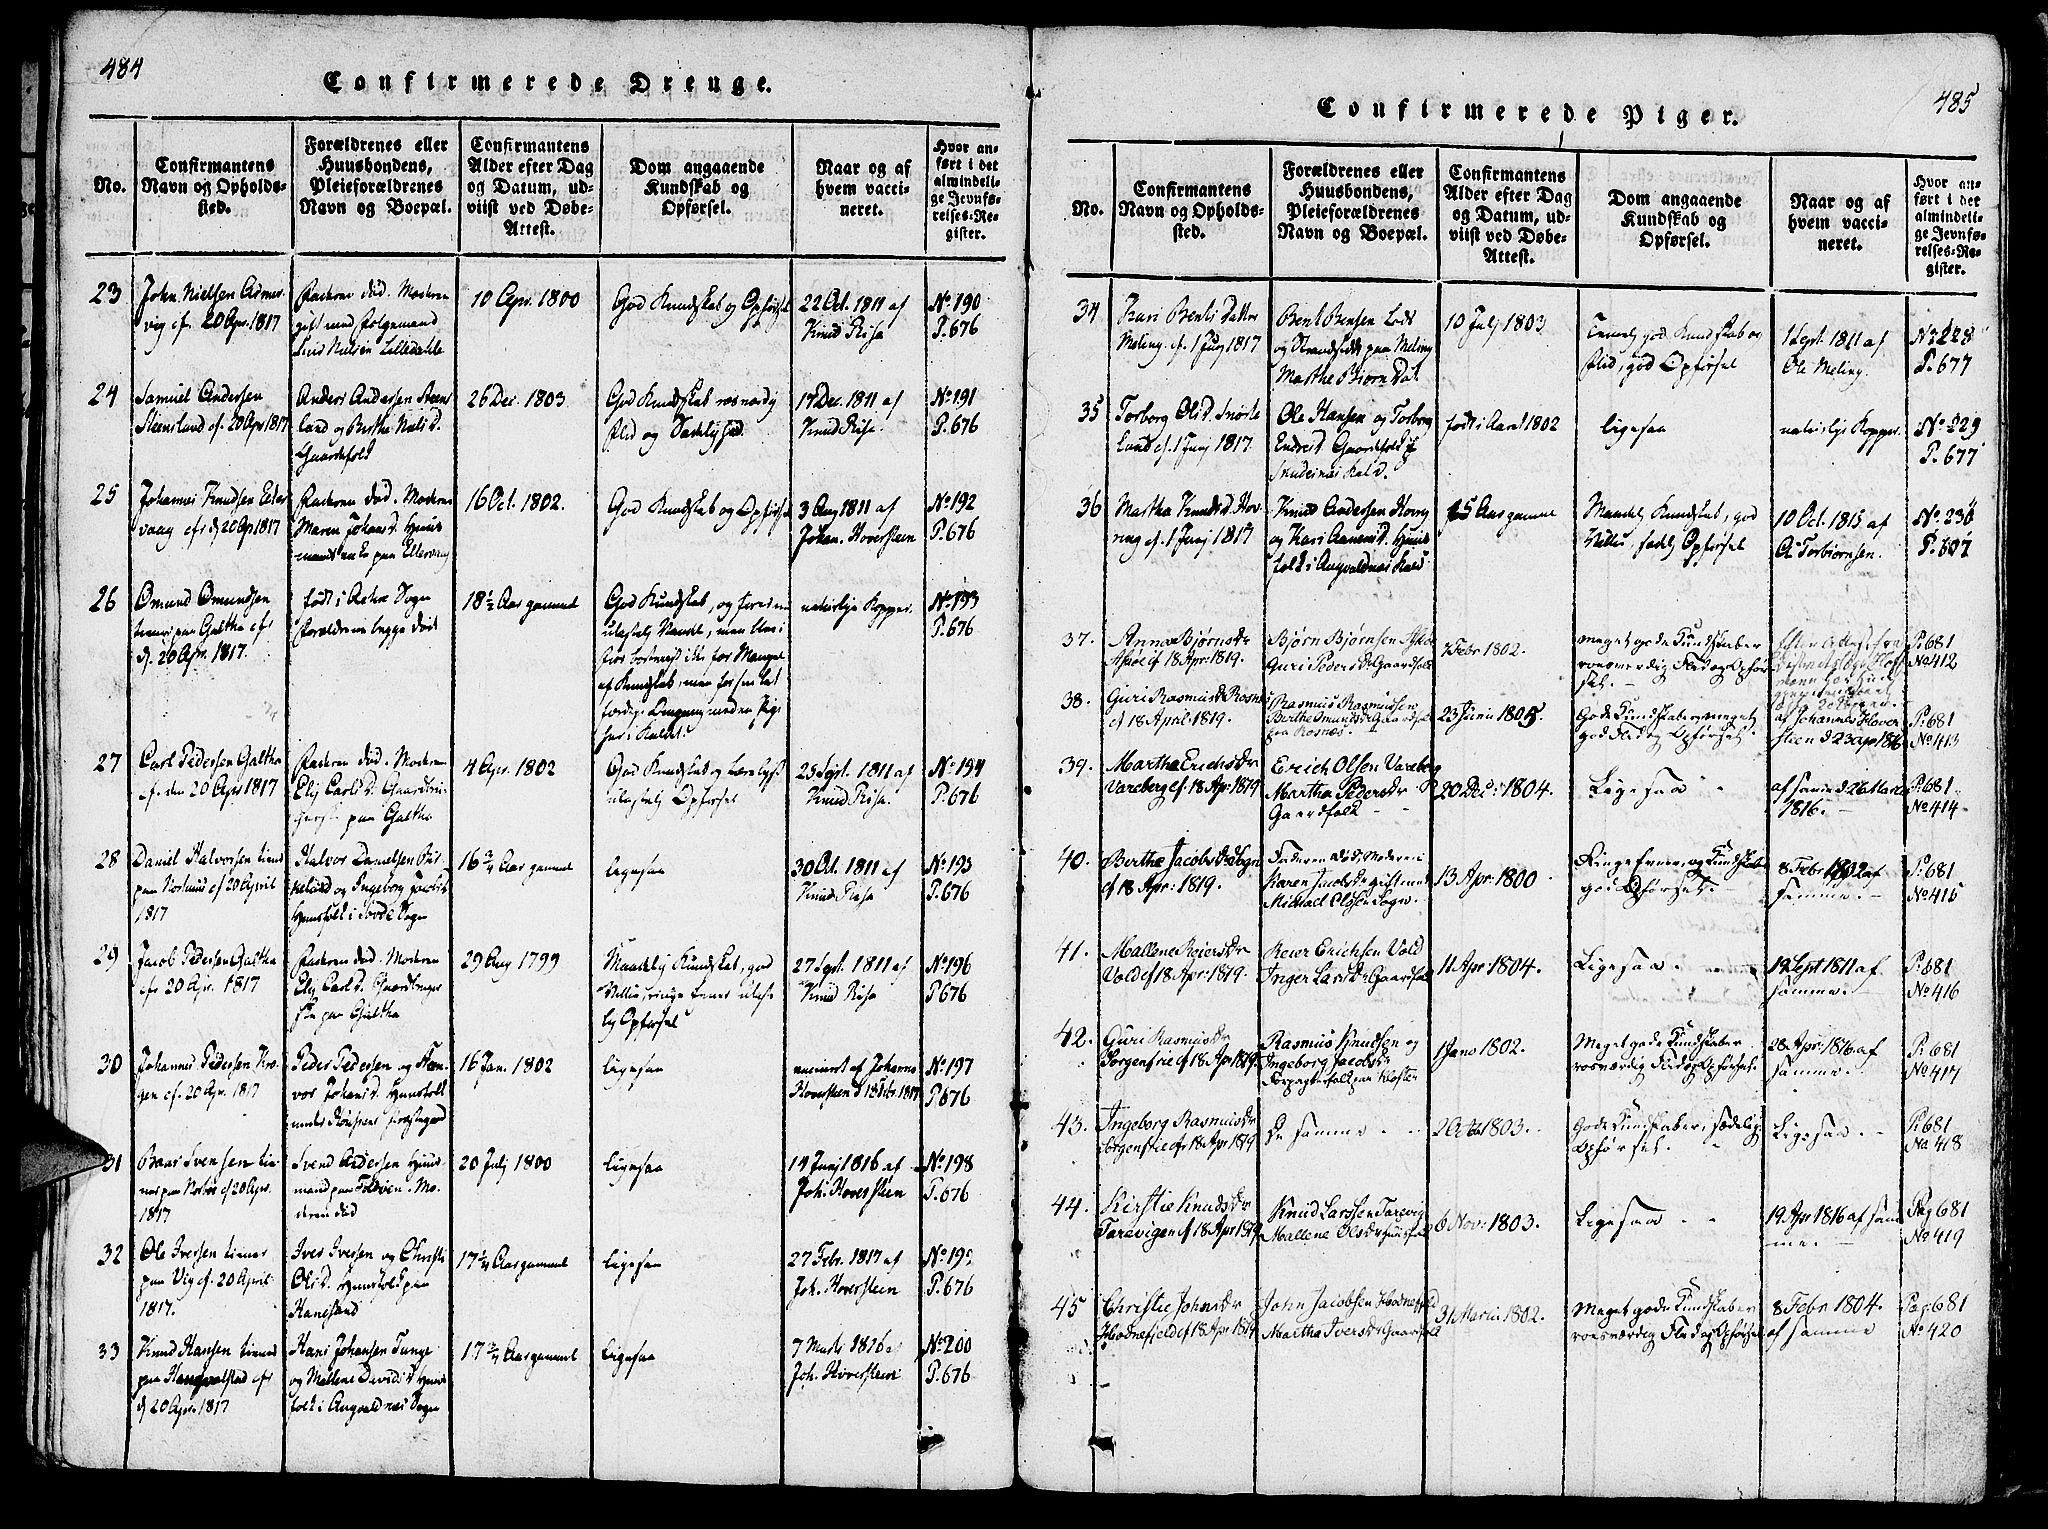 484
Confirmerede Drenge.
No.
Confirmantens
Navn og Opholds-
sted.
Forældrenes eller
Huusbondens,
Pleieforældrenes
Navn og Boepæl.
Confirmantens
Alder efter Dag
og Datum, ud-
viist ved Døbe-
Attest.
Dom angaaende
Kundskab og
Opførsel.
Naar og af
hvem vacci-
neret.
Hvor an-
ført i det
almindeli-
ge Jevnfø-
relses-Re-
gister.
23
John Nielsen
cf. 20 Apr. 1817
Faderen død. Moderen
gift med
Lars Nielsen
10 Apr. 1800
God Kundskab og Opførsel
22 Oct. 1811 af
Knud Risa
No 190
P. 676
24
Samuel Andersen
Steensland cf. 20 Apr 1817
Anders Andersen Steens
land og Berthe Niels D.
Gaardfolk
26 Dec. 1803
God Kundskab roesværdig
Flid og Sædelighed
17 Dec. 1811 af
Knud Risa.
No 191
P. 676
25
Johannes Knudsen Eller
vaag cf. d. 20 Apr 1817
Faderen død. Moderen
Maren Johans D. Huus
mands enke paa Ellervaag
16 Oct. 1802.
God Kundskab og Opførsel
3 Aug 1811 af
Johan. Hoversteen
No. 192
P. 676
26
Omund Omundsen
tiener paa Galtha cf.
d. 20 Apr. 1817.
født i Sogn
Forældrene begge død
18½ Aar gammel
God Kundskab, og
for Mangel
af Kundskab, men
naturlige Kopper.
No. 193
P. 676
27
Carl Pedersen Galtha
cf. den 20 Apr 1817
Faderen død. Moderen
Elij Carls D.
paa Galtha
4 Apr. 1802
God Kundskab og
ulastelig Opførsel
25 Sept. 1811 af
Knud Risa.
No 194
P. 676
28
Daniel Halvorsen tiener
paa cf 20 April
1817
Halvor Danielsen
og Ingeborg Jacobs D.
Huusfolk i Sogn
16¾ Aar gammel
ligesaa
30 Oct. 1811 af
Knud Risa
No 195
P. 676
29
Jacob Pedersen Galtha
cf. 20 Apr. 1817
Faderen død. Moderen
Elij Carls D.
paa Galtha
29 Aug 1799
Maadelig Kundskab, god
Villie, ringe Evner ulaste
lig Opførsel
27 Sept. 1811 af
Knud Risa
No 196
P 676
30
Johannes Pedersen
cf. 20 Apr. 1817
Peder Pedersen og
Johans D. Huusfolk
16 Jan. 1802
ligesaa
vaccineret af Johannes
Hoversteen d 1817
No 197
P 676
31
Baar Svensen tie-
ner paa cf 20 Apr.
1817
Svend Andersen Huus
mand paa Mo-
deren død
20 Julj 1800
ligesaa
14 Junj 1816 af
Joh. Hoversteen
No. 198
P. 676
32
Ole Iversen tiener
paa Vig cf. 20 April
1817.
Iver Iversen og Christi
Ols D. Huusfolk paa
17¼ Aar gammel
ligesaa
27 Febr. 1817 af
Joh. Hoversteen
No. 199
P. 676
33
Knud Hansen tiener
paa cf
d 20 Apr. 1817
Hans Johansen Tunge
og Mallene Davids D Huus
folk i Augvaldnæs Sogn
17¾ Aar gammel
ligesaa
7 1816 af
Joh. Hoversteen
No. 200
P. 676
485
Confirmerede Piger.
No.
Confirmantens
Navn og Opholds-
sted.
Forældrenes eller
Huusbondens,
Pleieforældrenes
Navn og Boepæl.
Confirmantens
Alder efter Dag
og Datum, ud-
viist ved Døbe-
Attest.
Dom angaaende
Kundskab og
Opførsel.
Naar og af
hvem vacci-
neret.
Hvor an-
ført i det
almindeli-
ge Jevnfø-
relses-Re-
gister.
34
Kari Bents Datter
Meling. cf. 1 Junj 1817
Bent Bensen Lods
og Strandsidder paa Meling
Marthe Biørns Dat.
10 Julj 1803
god Kundskab og
Flid, god Opførsel
1 Sept. 1811 af
Ole Meling.
No 228
P. 677
35
Torborg Ols D.
Lund cf. 1 Junj 1817.
Ole Hansen og Torborg
Endres D Gaardfolk
Skudesnæs Kald.
født i Aaret 1802
ligesaa
naturlige Kopper.
No. 229
P. 677
36
Martha Knuds D. Hov
ring cf. 1 Junj 1817
Knud Andersen
og Kari D. Huus
folk i Augvaldnæs Kald
15 Aar gammel
Maadelig Kundskab, god
Villie, Opførsel
10 Oct. 1815 af
A. Torbiørnsen.
No. 230
P. 677
37.
Anna Bjørnsdr
cf 18 Apr: 1819.
Bjørn Bjørnsen
Guri Peders Dr Gaardfolk
Febr 1802.
meget gode Kundskaber
roesværdig Flid og Opfør
sel. -
Efter Attest fra
P: 681
No 412
38.
Guri Rasmusdr Rosnæs
cf 18 April: 1819.
Rasmus Rasmussen
Berthe Gaardfolk
paa Rosnæs.
23 Junii 1805.
Gode Kundskaber, meget
god Flid og Opførsel. -
af Johannes Hover
steen d 23 apr 1816
P: 681
No 413
39.
Martha Erichsdr
Vareberg cf: 18 Apr: 1819
Erich Olsen Vareberg
Martha Pedersdr
Gaardfolk -
20 Dec: 1804.
Ligesaa
af samme d 26 Marti
1816. -
P: 681
No 414
40.
Berthe Jacobsdr
cf 18 Apr: 1819.
Faderen død, Moderen
Karen Jacobsdr gift med
Michael Olsen
13 Apr: 1800
Ringe Evner, og Kundskaber
god Opførsel. -
8 Febr 1802 af
samme. -
P: 681
No 415
41.
Mallene Reiersdr
Vold cf 18 Apr: 1819.
Reier Erichsen Vold
Inger Larsdr Gaardfolk
11 Apr: 1804.
Ligesaa
19 Sept 1811 af
samme. -
P: 681
No 416
42.
Guri Rasmusdr
Sorgenfrie cf 18 Apr 1819.
Rasmus Knudsen og
Ingeborg Jacobsdr
Forpagterfolk paa Kloster
1 Jan 1802.
Meget gode Kundskaber
roesværdig Flid og Opførsel.
28 Apr: 1816 af
samme. -
P: 681
No 417
43.
Ingeborg Rasmusdr
Sorgenfrie cf 18 Apr 1819
De samme
2 Octb 1803.
Gode Kundskaber, sædelig
Opførsel.
Ligesaa -
P: 681
No 418
44.
Kirstie Knudsdr
Tarevigen cf 18 Apr 1819
Knud Larssen Tarevig
Mallene Olsdr Huusfolk
6 Nov: 1803.
Ligesaa
19 Apr 1816 af sam
me. -
Pag 681
No 419
45
Christie Johnsdr
Hodnefjeld cf 18 Apr 1819
John Jacobsen Hodnefjeld
Martha Iversdr Gaardfolk
31 Martii 1802.
Meget gode Kundskaber
roesværdig Flid og Opførsel
8 Febr 1804.
af samme
Pag 681
No 420